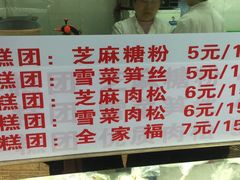 糕团：芝麻糖粉 5元/1
糕团：雪菜笋丝 5元/1
糕团：芝麻肉松 6元/1
糕团：雪菜肉松 6元/1
糕团：全家福 7元/1